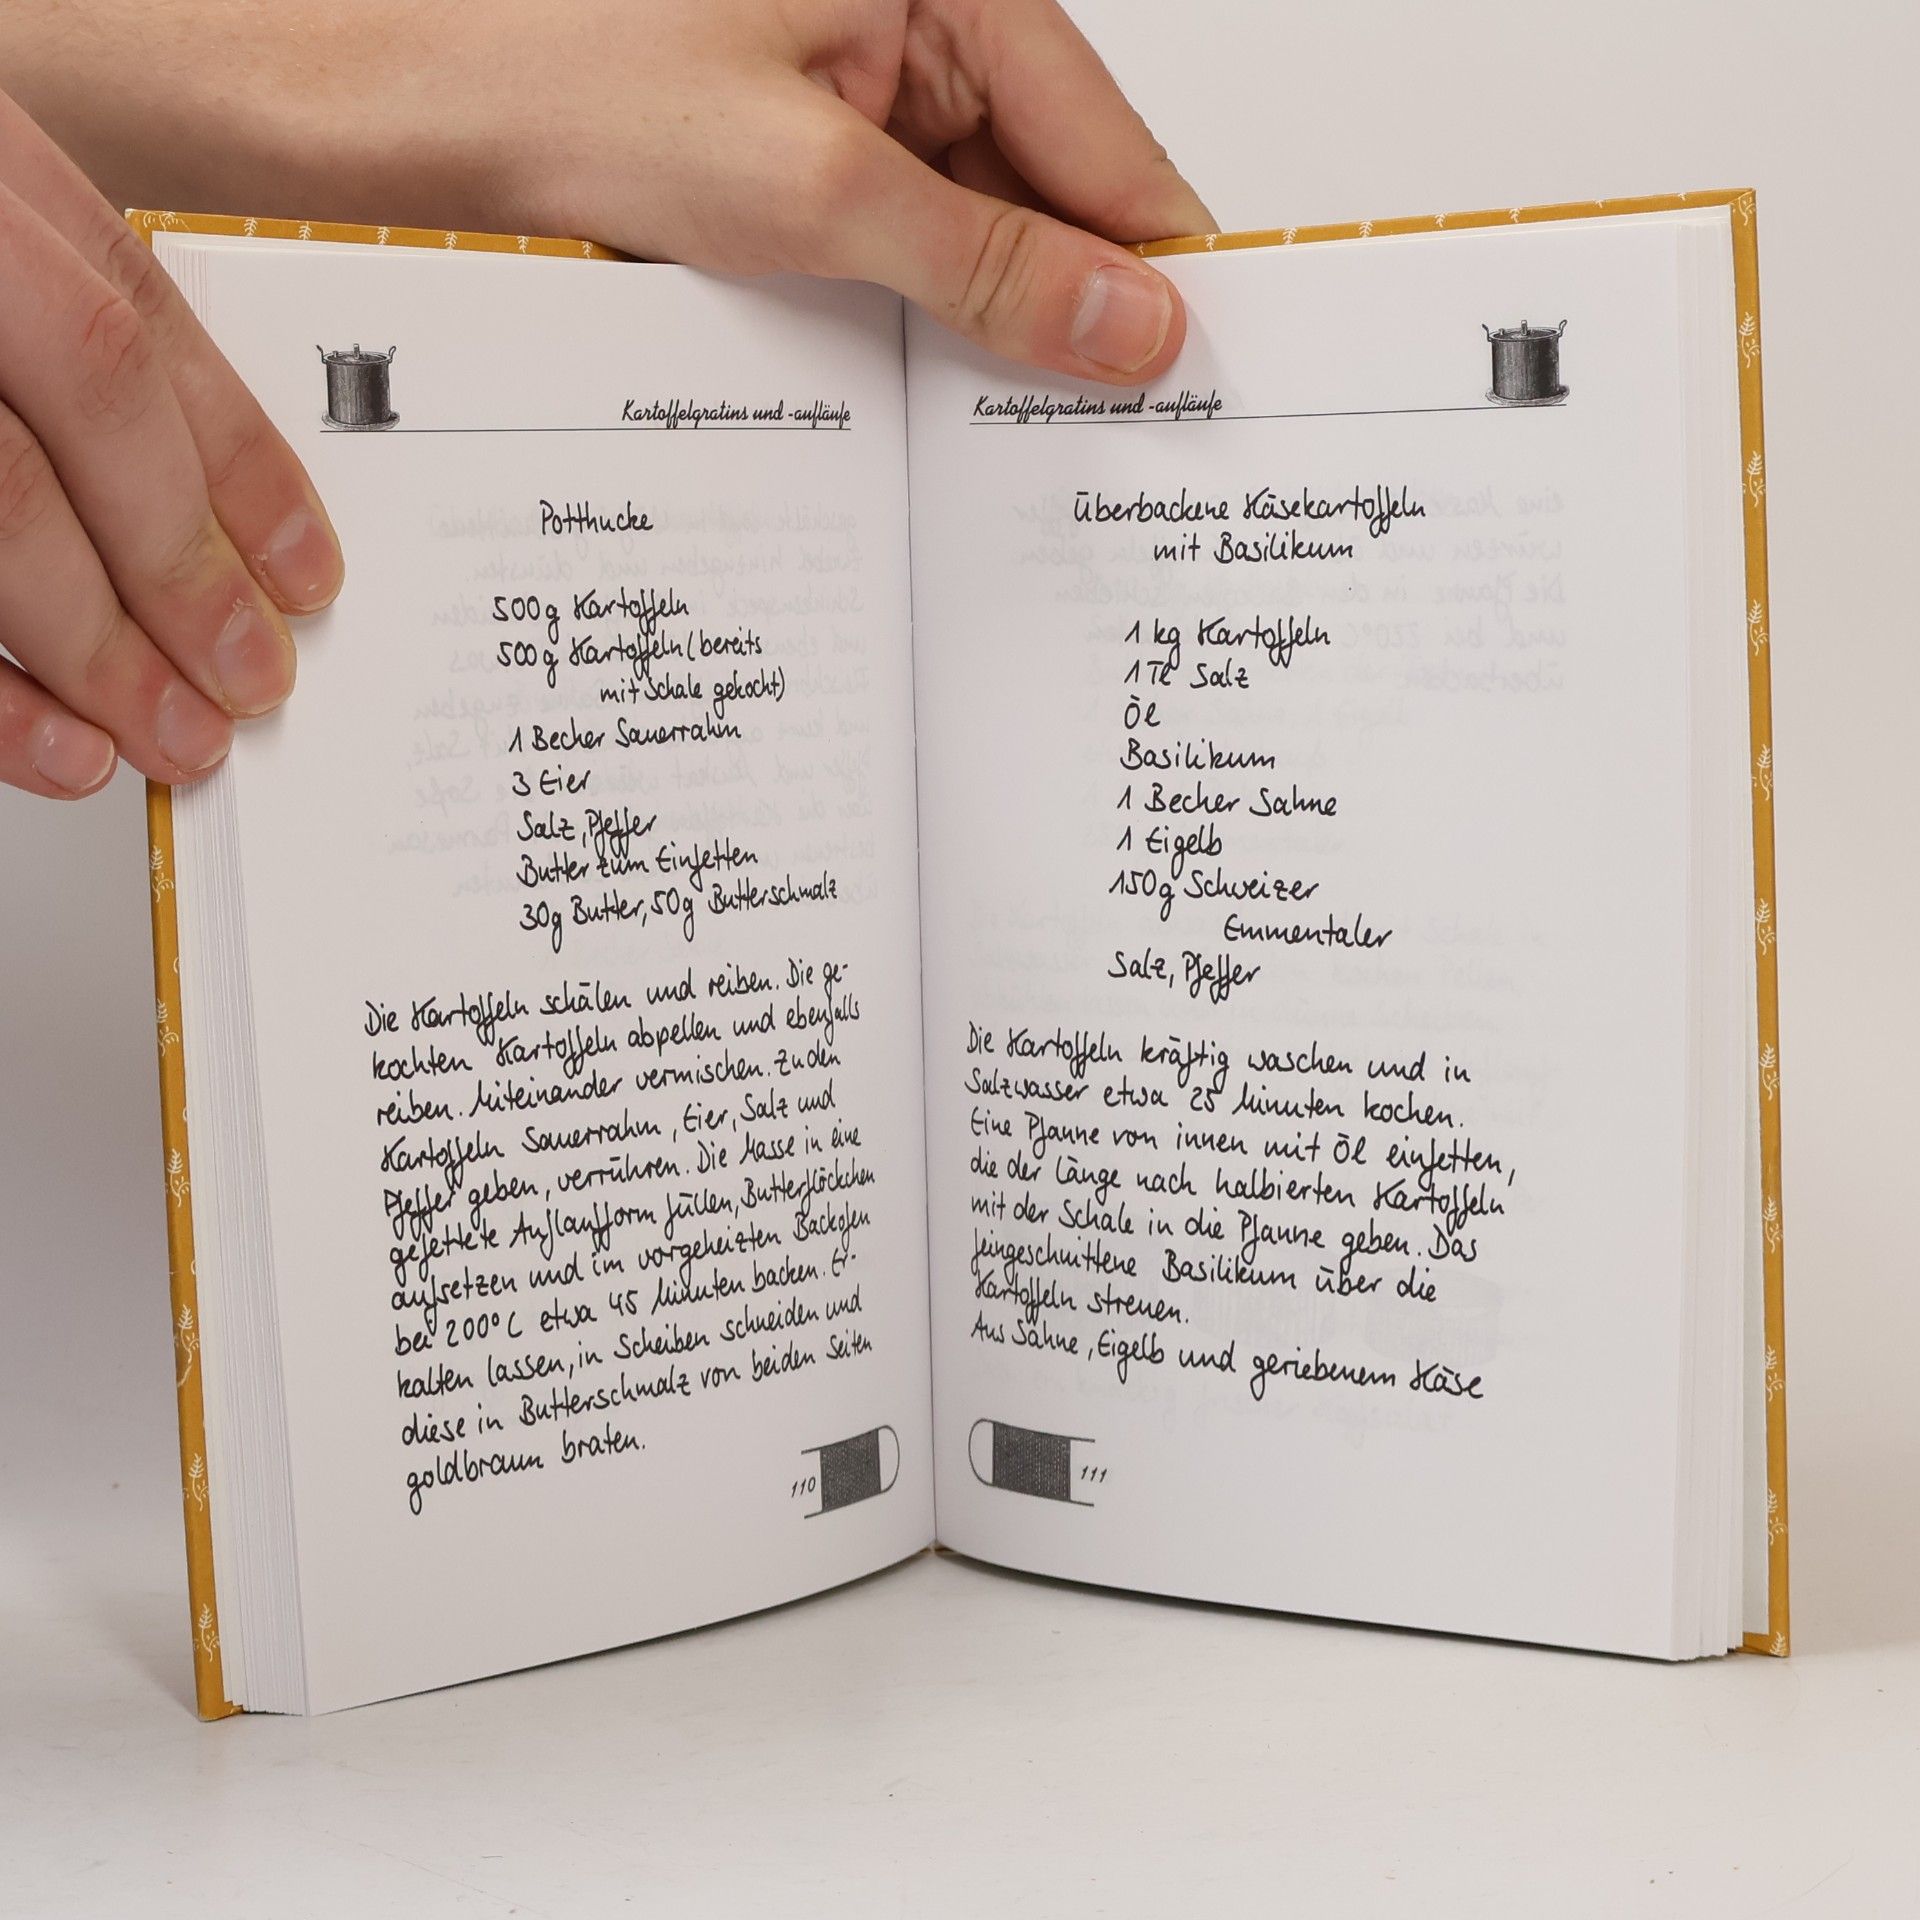 Kartoffelgratins und -aufläufe
Potthucke
500g Kartoffeln
500g Kartoffeln (bereits
mit Schale gekocht)
1 Becher Sauerrahm
3 Eier
Salz, Pfeffer
Butter zum Einfetten
30g Butter, 50g Butterschmalz
Die Kartoffeln schälen und reiben. Die ge-
kochten Kartoffeln abpellen und ebenfalls
reiben. Miteinander vermischen. Zu den
Kartoffeln Sauerrahm, Eier, Salz und
Pfeffer geben, verrühren. Die Masse in eine
gefettete Auflaufform füllen, Butterflöckchen
aufsetzen und im vorgeheizten Backofen
bei 200°C etwa 45 Minuten backen. Er-
kalten lassen, in Scheiben schneiden und
diese in Butterschmalz von beiden Seiten
goldbraun braten.
110
Kartoffelgratins und -aufläufe
Überbackene Käsekartoffeln
mit Basilikum
1 kg Kartoffeln
1 Tl Salz
Öl
Basilikum
1 Becher Sahne
1 Eigelb
150g Schweizer
Emmentaler
Salz, Pfeffer
Die Kartoffeln kräftig waschen und in
Salzwasser etwa 25 Minuten kochen.
Eine Pfanne von innen mit Öl einfetten,
die der Länge nach halbierten Kartoffeln
mit der Schale in die Pfanne geben. Das
feingeschnittene Basilikum über die
Kartoffeln streuen.
Aus Sahne, Eigelb und geriebenem Käse
111